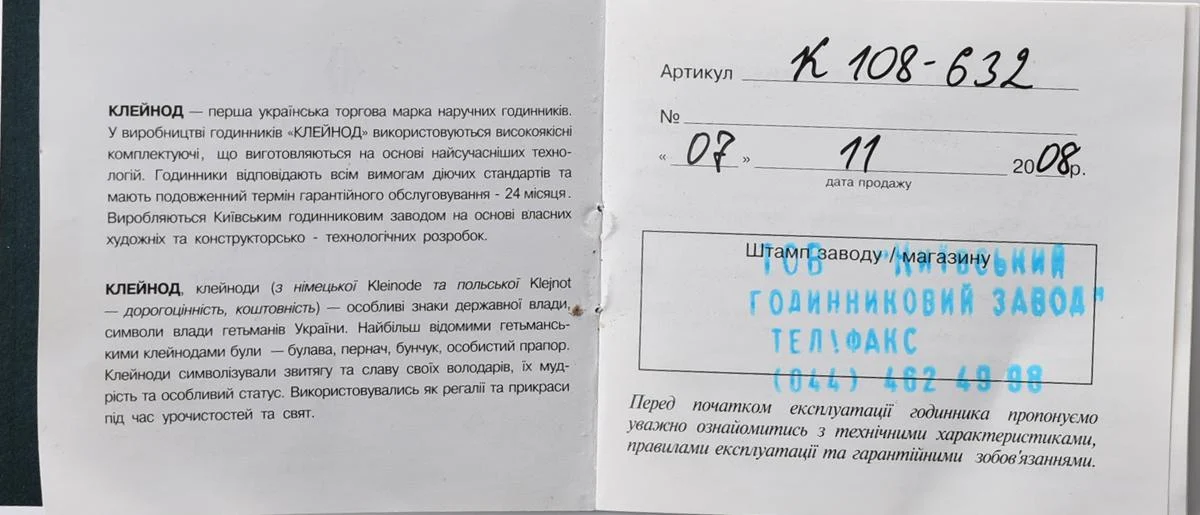 КЛЕЙНОД — перша українська торгова марка наручних годинників.
У виробництві годинників «КЛЕЙНОД» використовуються високоякісні
комплектуючі, що виготовляються на основі найсучасніших техно-
логій. Годинники відповідають всім вимогам діючих стандартів та
мають подовженний термін гарантійного обслуговування - 24 місяця.
Виробляються Київським годинниковим заводом на основі власних
художніх та конструкторсько - технологічних розробок.
КЛЕЙНОД, клейноди (з німецької Kleinode та польської Klejnot
— дорогоцінність, коштовність) — особливі знаки державної влади,
символи влади гетьманів України. Найбільш відомими гетьмансь-
кими клейнодами були — булава, пернач, бунчук, особистий прапор.
Клейноди символізували звитягу та славу своїх володарів, їх муд-
рість та особливий статус. Використовувались як регалії та прикраси
під час урочистостей та свят.
Артикул К 108-632
№
« 07 » 11 2008р.
дата продажу
Штамп заводу / магазину
ТОВ "КИЇВСЬКИЙ
ГОДИННИКОВИЙ ЗАВОД"
ТЕЛ!ФАКС
(044) 462 49 98
Перед початком експлуатації годинника пропонуємо
уважно ознайомитись з технічними характеристиками,
правилами експлуатації та гарантійними зобов'язаннями.